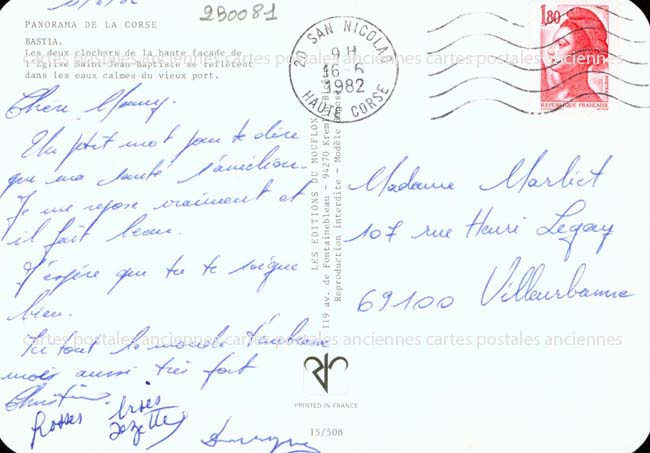 2B0081
PANORAMA DE LA CORSE
BASTIA.
Les deux clochers de la haute façade de
l'Église Saint-Jean-Baptiste se reflètent
dans les eaux calmes du vieux port.
Chère Mamy.
Un ptit mot pour te dire
que ma santé s'améliore.
Je me repose vraiment et
il fait beau.
J'espère que tu te soigne
bien.
Ici tout le monde t'embrasse
moi aussi très fort
Christine
Grosses bises
Zezette
20 SAN NICOLAO
9H
16-6
1982
HAUTE CORSE
1,80
REPUBLIQUE FRANCAISE
LES EDITIONS DU MOUFLON
119 av. de Fontainebleau - 94270 Kremlin-Bicêtre
Reproduction interdite - Modèle déposé
Madame Marliet
107 rue Henri Legay
69100 Villeurbanne
cartes postales anciennes cartes postales anciennes cartes postales anciennes
cartes postales anciennes cartes postales anciennes cartes postales anciennes
PRINTED IN FRANCE
15/508